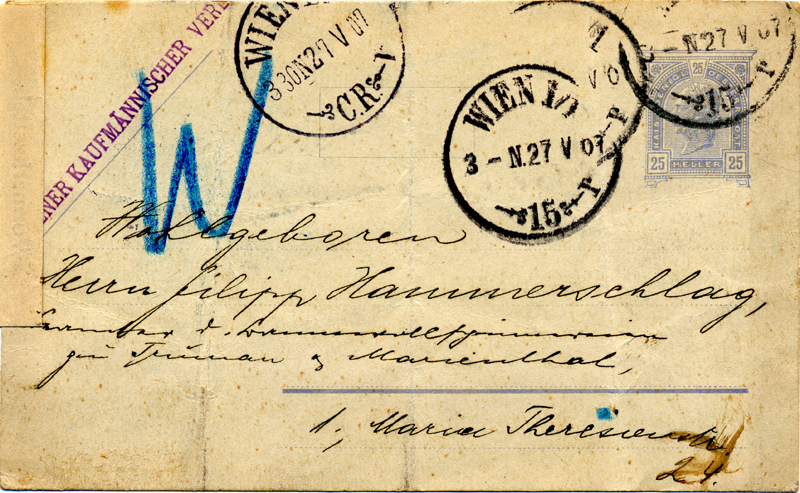 WIENER KAUFMÄNNISCHER VER
WIEN
3 30N 27 V 07
C.R.
WIEN 1/1
3 - N.27 V 07
15
- N.27 V 07
15
25
25 HELLER 25
W
Wohlgeboren
Herrn Filipp Hammerschlag,
d.
zu Trumau & Marienthal,
1., Maria Theresienstr.
24.